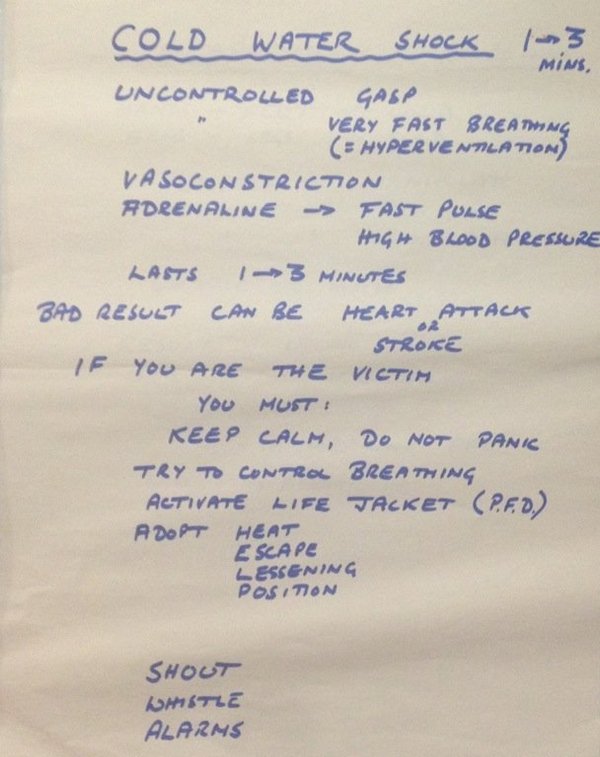 COLD WATER SHOCK 1→3
MINS.
UNCONTROLLED GASP
" VERY FAST BREATHING
(= HYPERVENTILATION)
VASOCONSTRICTION
ADRENALINE → FAST PULSE
HIGH BLOOD PRESSURE
LASTS 1→3 MINUTES
BAD RESULT CAN BE HEART ATTACK
OR
STROKE
IF YOU ARE THE VICTIM
YOU MUST:
KEEP CALM, DO NOT PANIC
TRY TO CONTROL BREATHING
ACTIVATE LIFE JACKET (P.F.D.)
ADOPT HEAT
ESCAPE
LESSENING
POSITION
SHOUT
WHISTLE
ALARMS